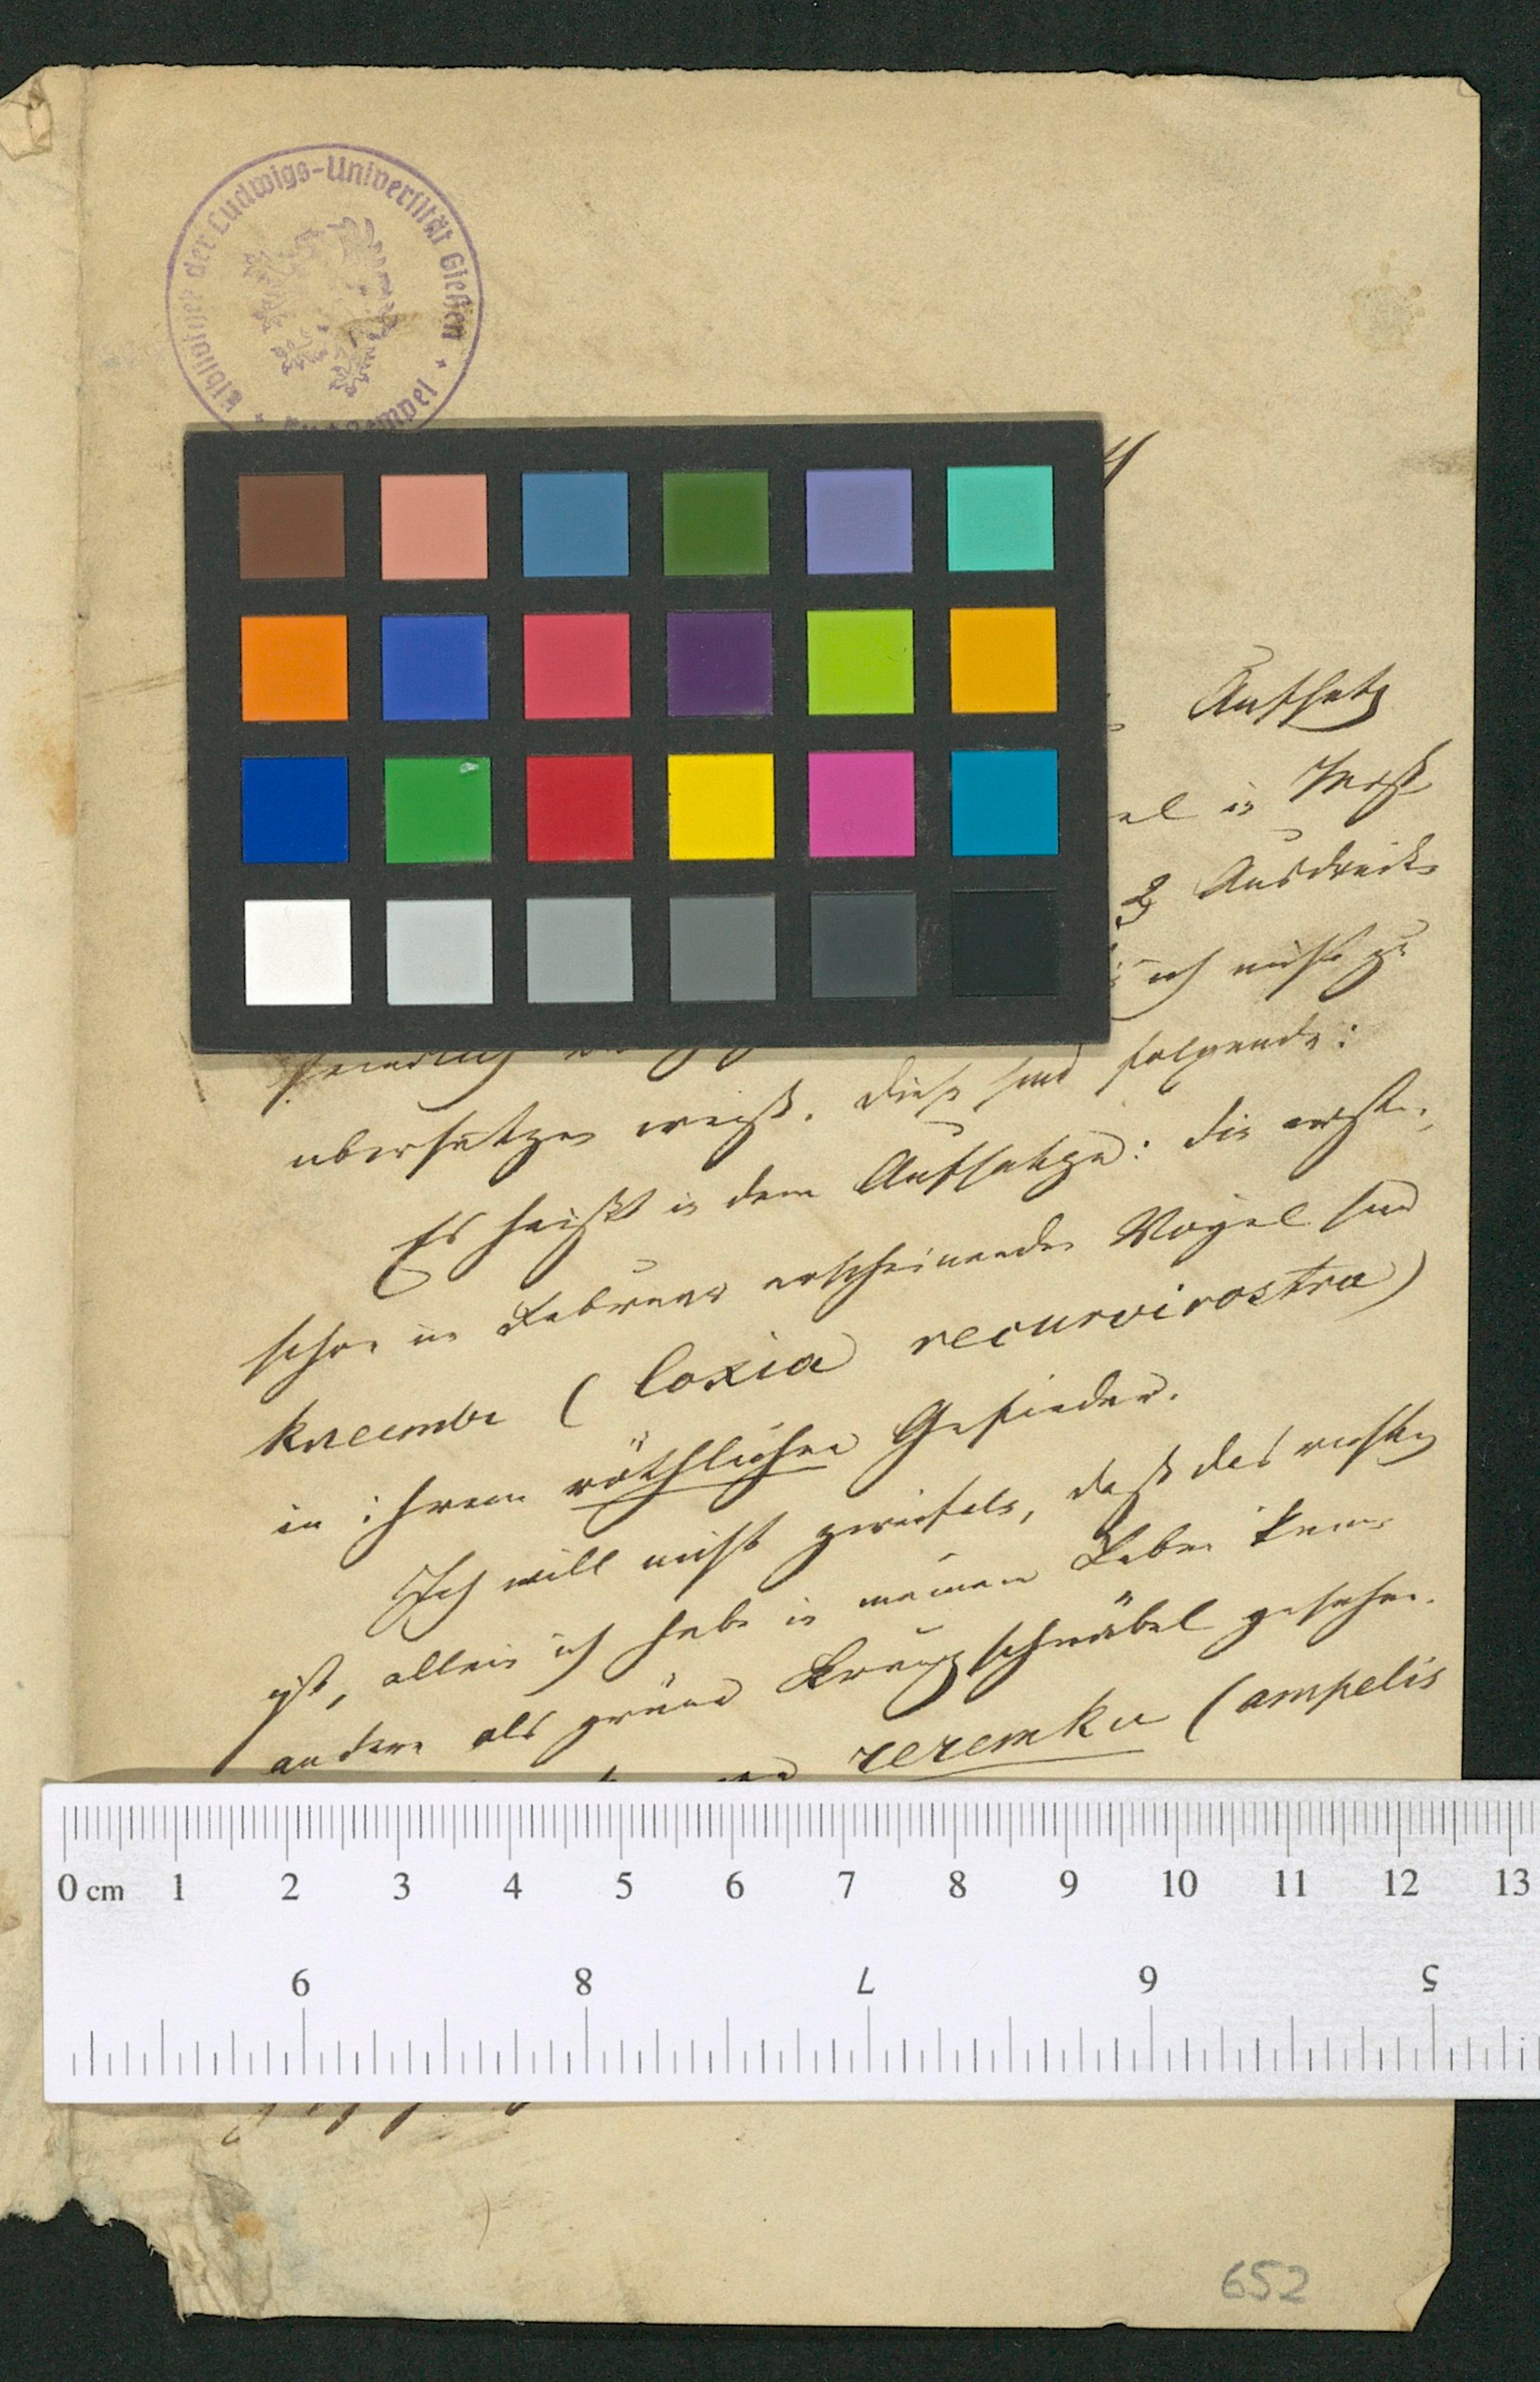 Bibliothek der Ludwigs-Universität Gießen
Aufsatz
el in
2 Ausdrücke
ich nicht zu
übersetzen weiß. Diese sind folgende:
Es heißt in dem Aufsatze: die ersten,
schon im Februar erscheinenden Vögel sind
(loxia recurvirostra)
in ihrem röthlichen Gefieder.
Ich will nicht zweifeln, daß das richtig
ist, allein ich habe in meinem Leben keine
andere als grüne Kreuzschnäbel gesehen.
(ampelis
0 cm 1 2 3 4 5 6 7 8 9 10 11 12 13
9 8 7 6 5
652